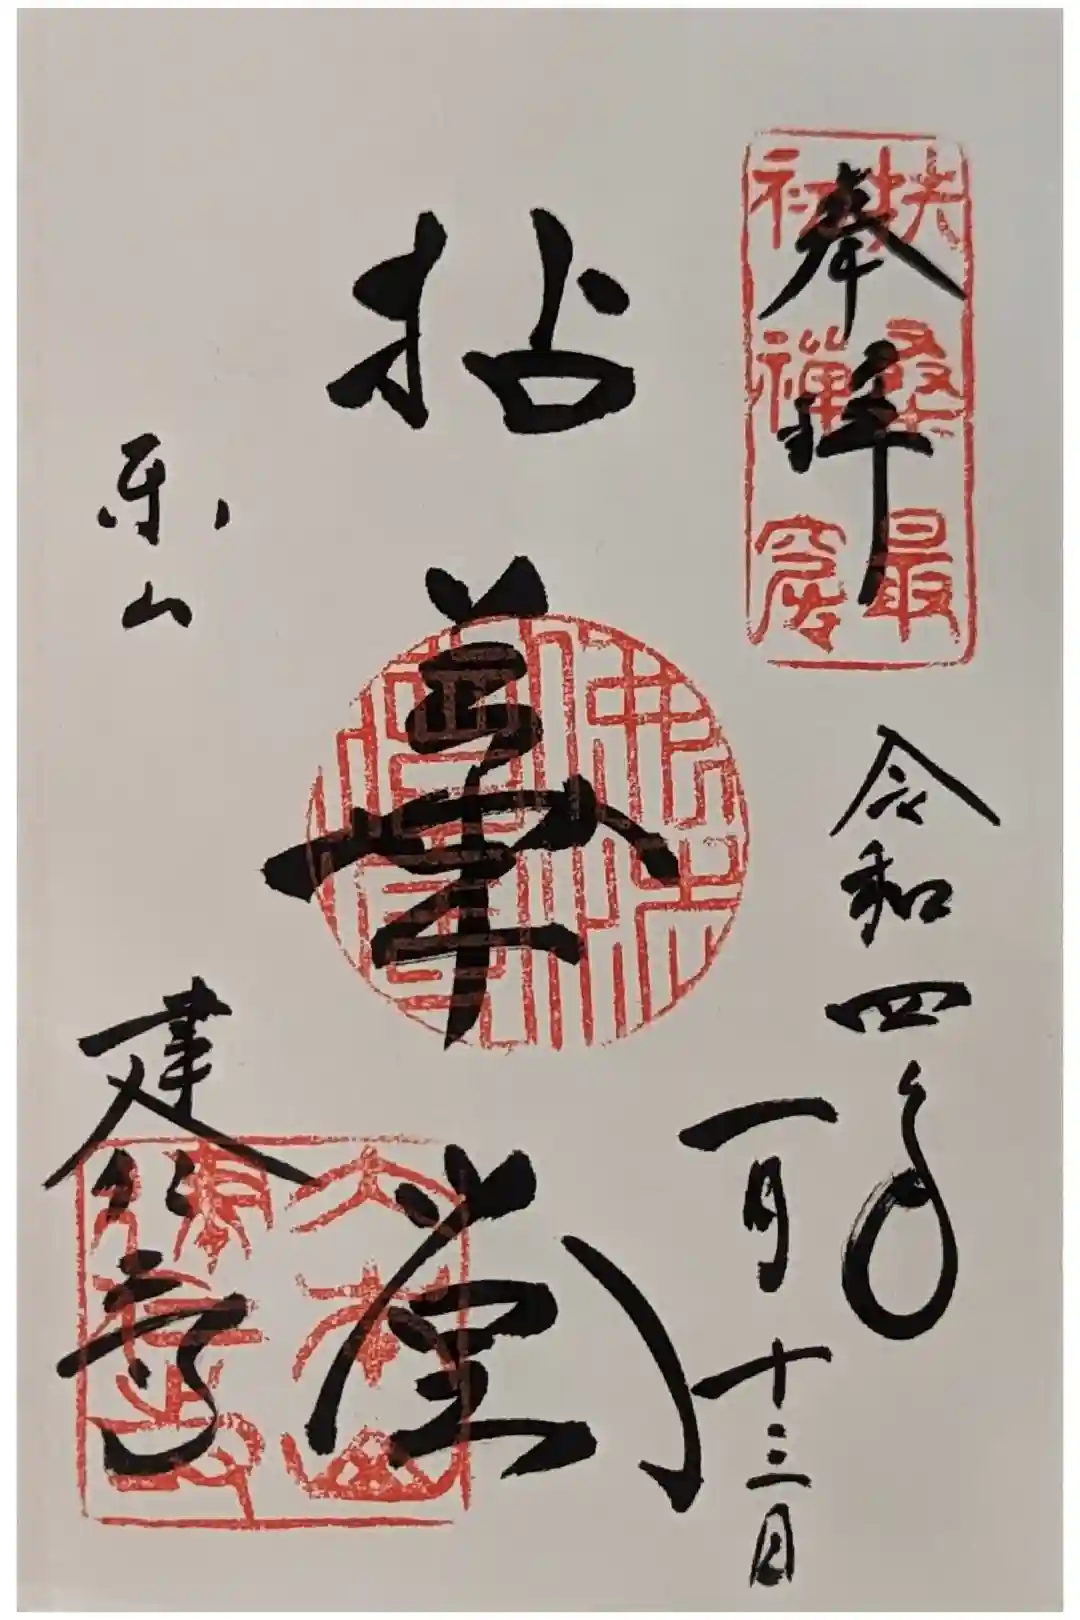 奉拝
扶桑最
初禅窟
令和四年
一月十三日
拈華堂
佛法僧寳
東山
建仁寺